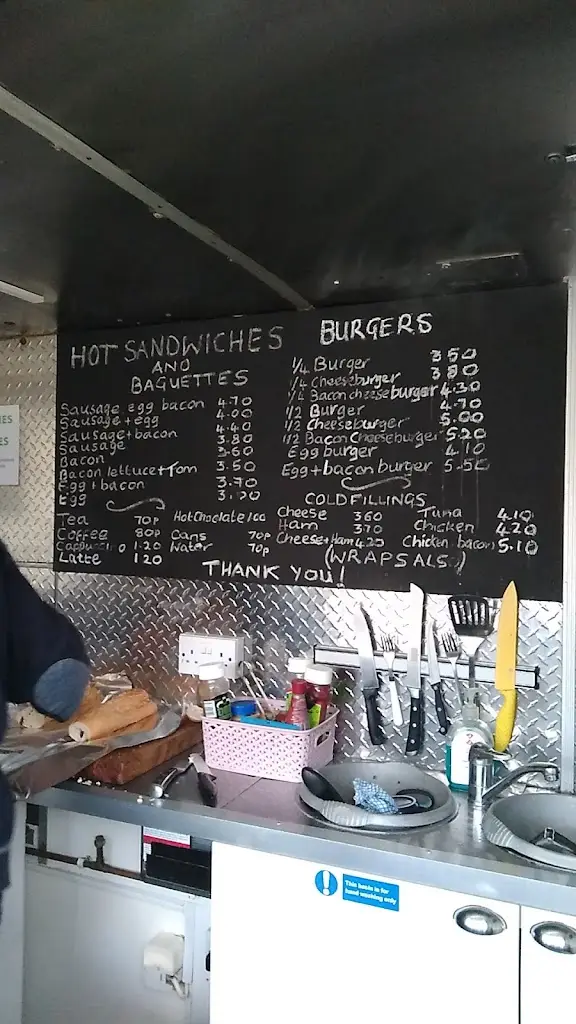 HOT SANDWICHES
AND
BAGUETTES
Sausage egg bacon 4.70
Sausage + egg 4.00
Sausage + bacon 4.40
Sausage 3.80
Bacon 3.60
Bacon lettuce + Tom 3.50
Egg + bacon 3.70
Egg 3.20
BURGERS
1/4 Burger 3 50
1/4 Cheeseburger 3 80
1/4 Bacon cheeseburger 4.30
1/2 Burger 4.70
1/2 Cheeseburger 5.00
1/2 Bacon Cheeseburger 5.20
Egg burger 4 10
Egg + bacon burger 5.50
COLD FILLINGS
Cheese 3 60 Tuna 4.10
Ham 3 70 Chicken 4.20
Cheese + Ham 4.20 Chicken bacon 5.10
(WRAPS ALSO)
Tea 70p Hot Chocolate 1 00
Coffee 80p Cans 70p
Cappuccino 1.20 Water 70p
Latte 1 20
THANK YOU!
This basin is for
hand washing only